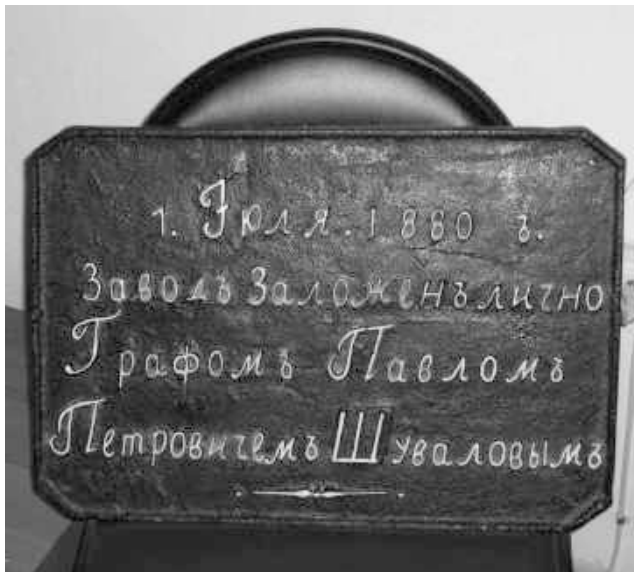 1. Іюля. 1880 г.
Заводъ Заложенъ лично
Графомъ Павломъ
Петровичемъ Шуваловымъ